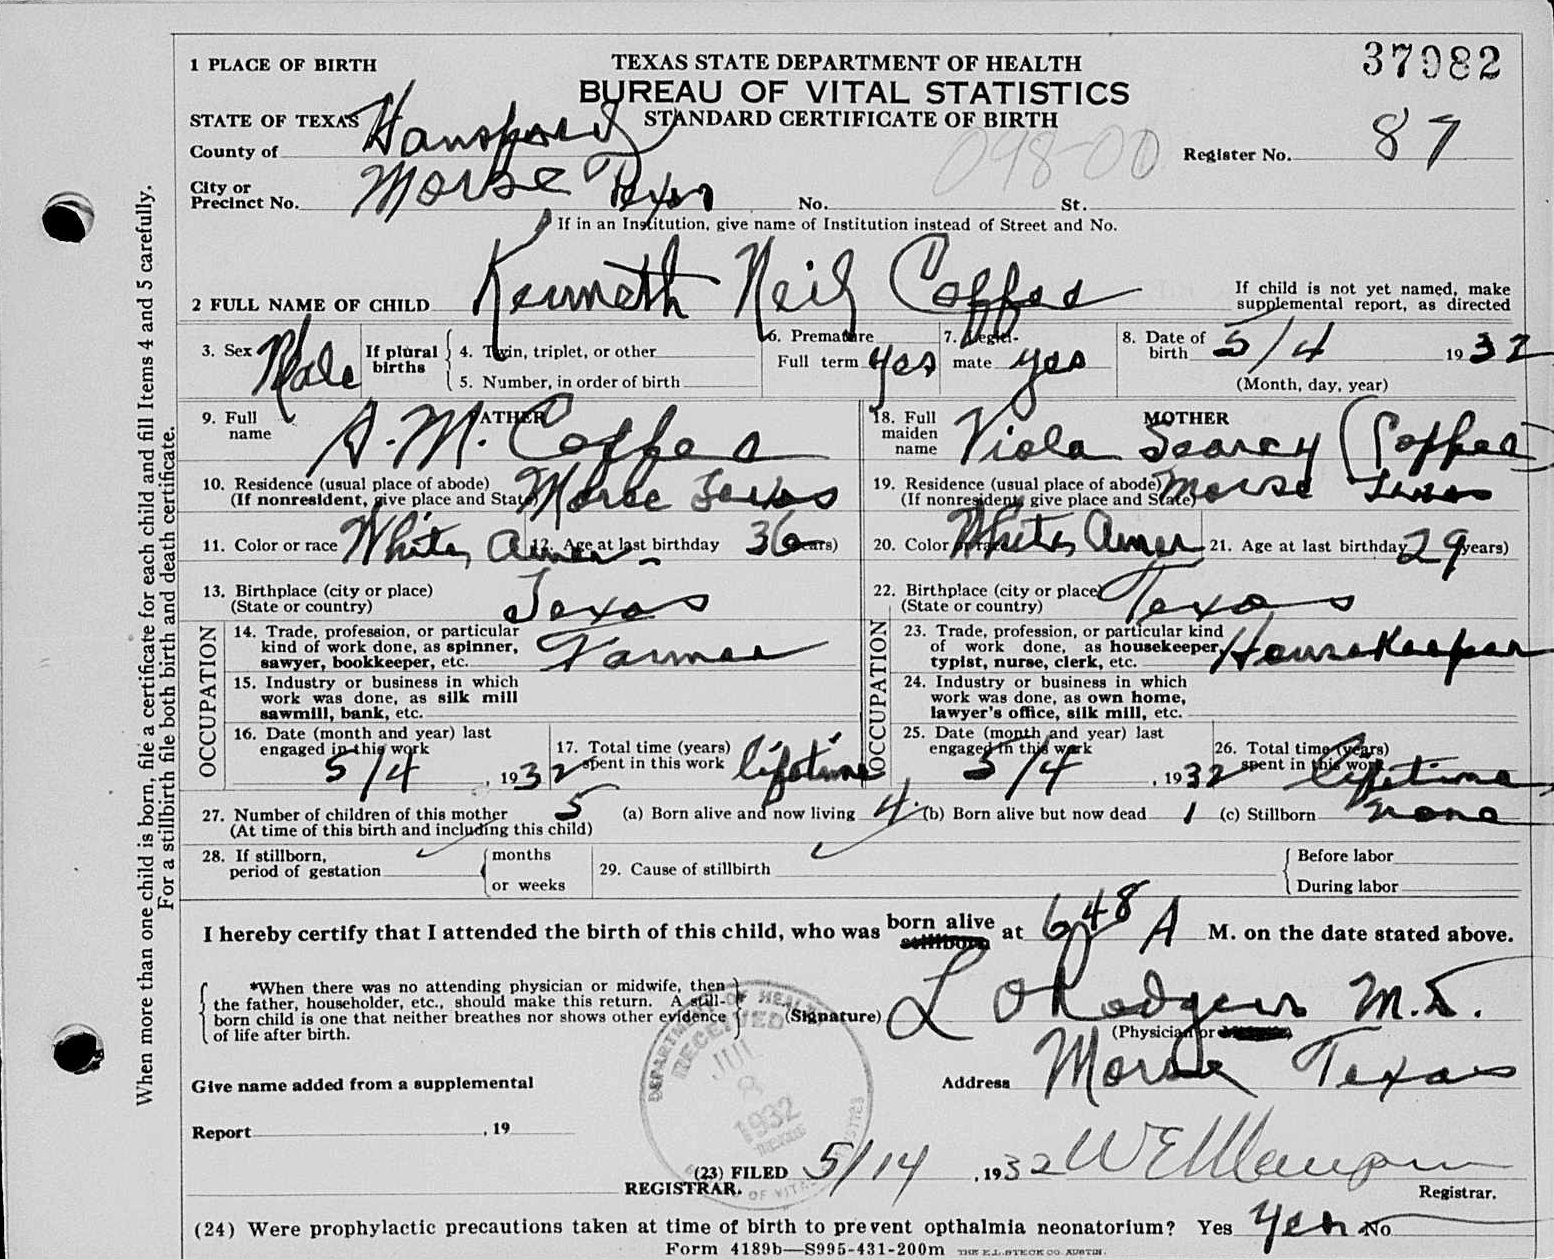 37982
1 PLACE OF BIRTH
TEXAS STATE DEPARTMENT OF HEALTH
BUREAU OF VITAL STATISTICS
STANDARD CERTIFICATE OF BIRTH
STATE OF TEXAS
County of Hansford
098-00
Register No. 87
City or Precinct No. Morse Texas No. St.
If in an Institution, give name of Institution instead of Street and No.
2 FULL NAME OF CHILD Kenneth Neil Coffee
If child is not yet named, make
supplemental report, as directed
3. Sex Male
If plural births
4. Twin, triplet, or other
5. Number, in order of birth
6. Premature
Full term yes
7. Legiti-
mate yes
8. Date of birth 5/4 1932
(Month, day, year)
FATHER
9. Full name A. M. Coffee
10. Residence (usual place of abode)
(If nonresident, give place and State) Morse Texas
11. Color or race White, Amer. 12. Age at last birthday 36 (years)
13. Birthplace (city or place)
(State or country) Texas
OCCUPATION
14. Trade, profession, or particular
kind of work done, as spinner,
sawyer, bookkeeper, etc. Farmer
15. Industry or business in which
work was done, as silk mill
sawmill, bank, etc.
16. Date (month and year) last
engaged in this work 5/4, 1932
17. Total time (years)
spent in this work lifetime
MOTHER
18. Full maiden name Viola Searcy (Coffee)
19. Residence (usual place of abode)
(If nonresident, give place and State) Morse Texas
20. Color or race White, Amer 21. Age at last birthday 29 (years)
22. Birthplace (city or place)
(State or country) Texas
OCCUPATION
23. Trade, profession, or particular kind
of work done, as housekeeper,
typist, nurse, clerk, etc. Housekeeper
24. Industry or business in which
work was done, as own home,
lawyer's office, silk mill, etc.
25. Date (month and year) last
engaged in this work 5/4, 1932
26. Total time (years)
spent in this work lifetime
27. Number of children of this mother
(At time of this birth and including this child) 5 (a) Born alive and now living 4 (b) Born alive but now dead 1 (c) Stillborn none
28. If stillborn,
period of gestation
months
or weeks
29. Cause of stillbirth
Before labor
During labor
I hereby certify that I attended the birth of this child, who was born alive stillborn at 6 48 A M. on the date stated above.
*When there was no attending physician or midwife, then
the father, householder, etc., should make this return. A still-
born child is one that neither breathes nor shows other evidence
of life after birth.
(Signature) L O Rodgers M.D.
(Physician or
Address Morse Texas
Give name added from a supplemental
Report , 19
DEPARTMENT OF HEALTH
RECEIVED
JUL
8
1932
(23) FILED 5/14, 1932
REGISTRAR.
Registrar.
(24) Were prophylactic precautions taken at time of birth to prevent opthalmia neonatorium? Yes Yes No
Form 4189b—S995-431-200m THE E.L. STECK CO. AUSTIN.
When more than one child is born, file a certificate for each child and fill Items 4 and 5 carefully.
For a stillbirth file both birth and death certificate.